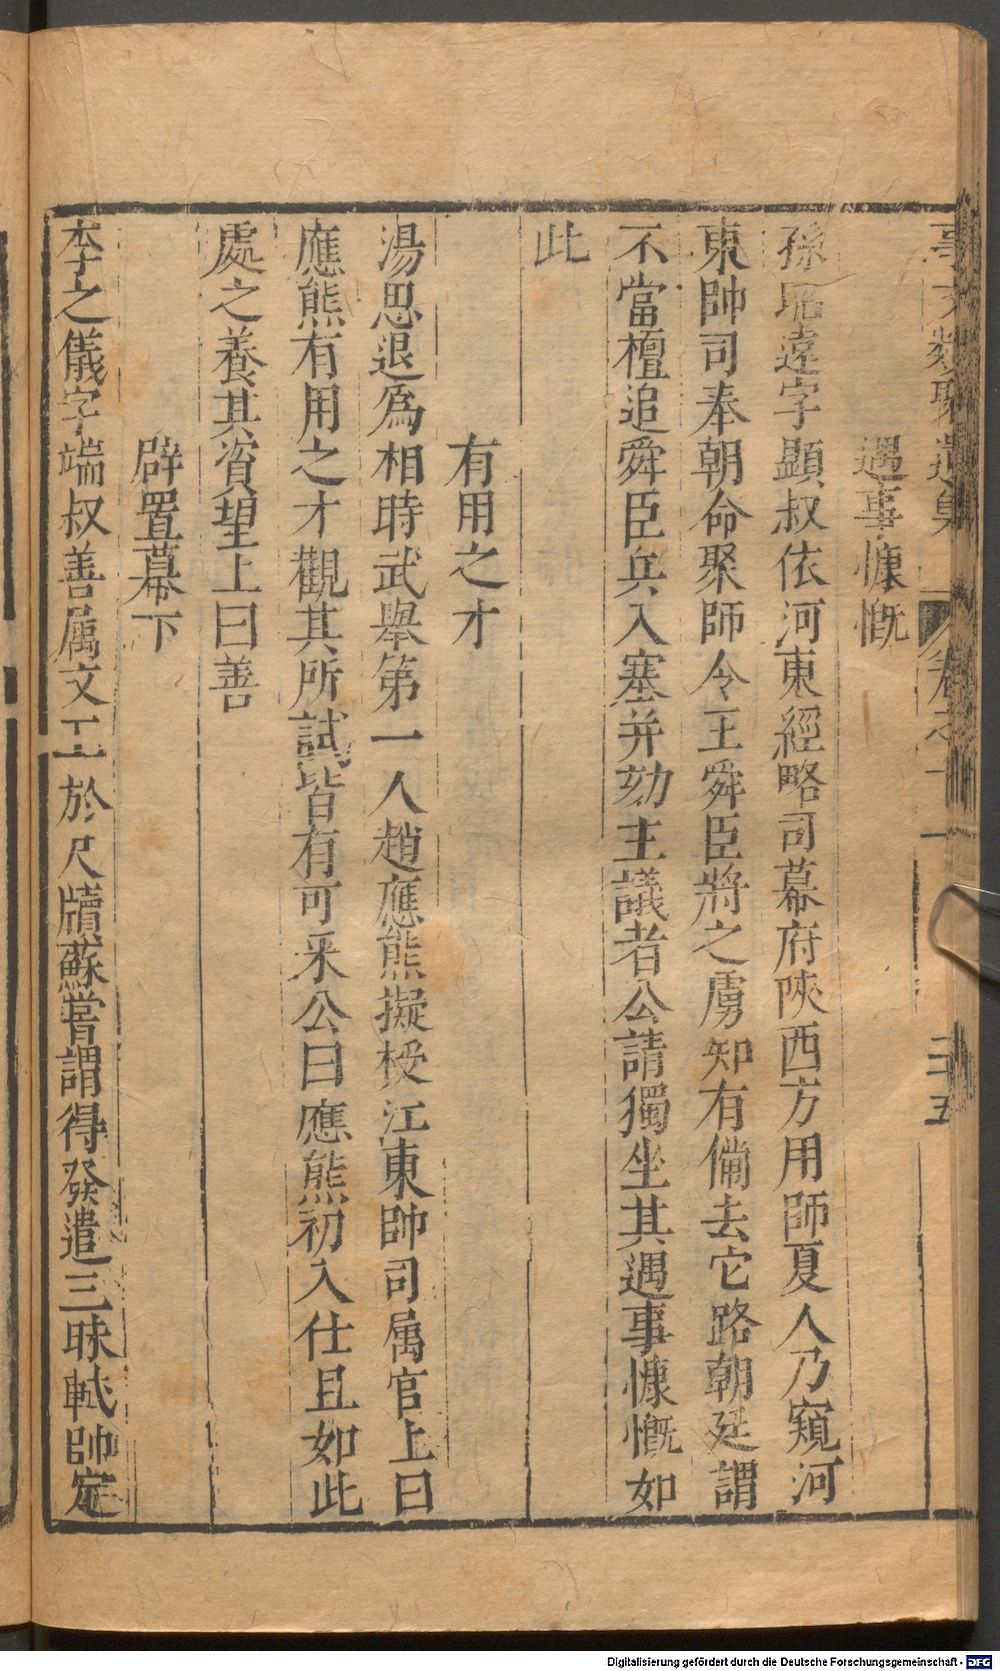 事文類聚遺集 卷之十一 二五
遇事慷慨
孫昭遠字顯叔依河東經略司幕府陝西方用師夏人乃窺河
東帥司奉朝命聚師令王舜臣將之虜知有備去它路朝廷謂
不當檀追舜臣兵入塞并劾主議者公請獨坐其遇事慷慨如
此
有用之才
湯思退為相時武舉第一人趙應熊擬授江東帥司属官上曰
應熊有用之才觀其所試皆有可采公曰應熊初入仕且如此
處之養其資望上曰善
辟置幕下
李之儀字端叔善属文工於尺牘蘇嘗謂得發遣三昧軾帥定
Digitalisierung gefördert durch die Deutsche Forschungsgemeinschaft - DFG